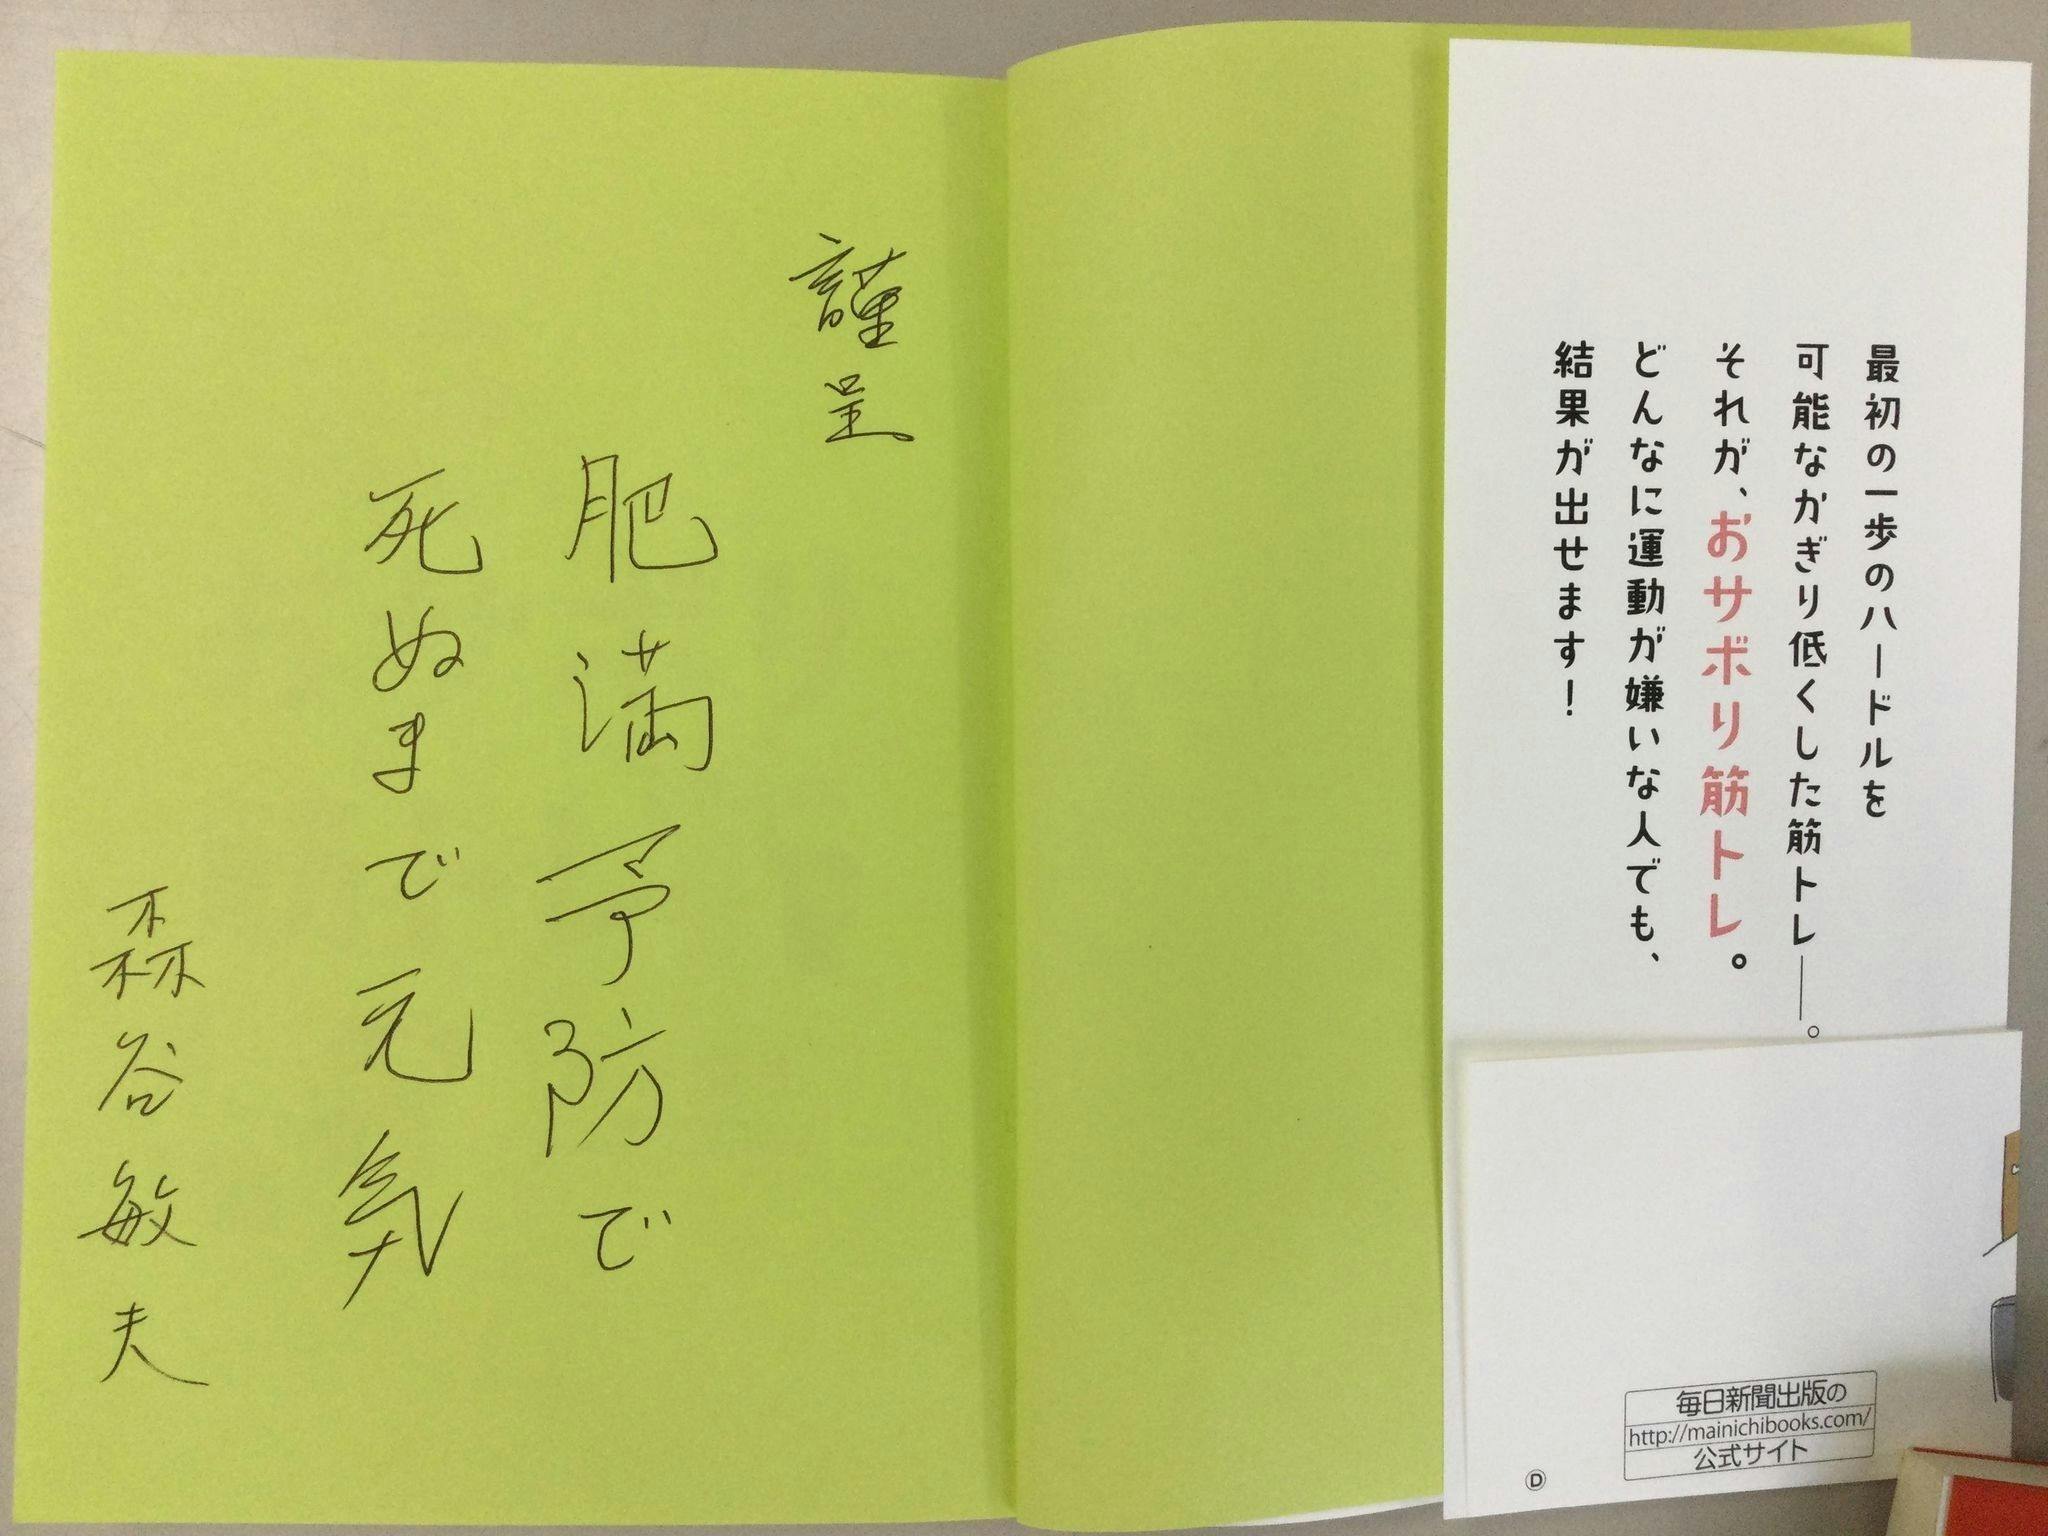 最初の一歩のハードルを
可能なかぎり低くした筋トレ――。
それが、おサボり筋トレ。
どんなに運動が嫌いな人でも、
結果が出せます！
毎日新聞出版の
http://mainichibooks.com/
公式サイト
Ⓓ
謹呈
肥満予防で
死ぬまで元気
森谷敏夫